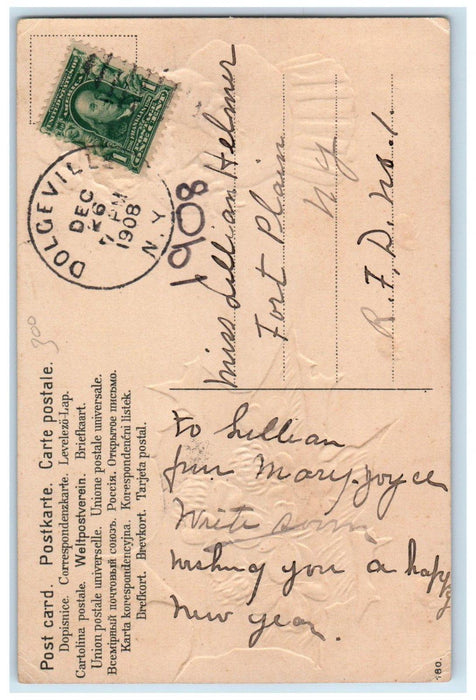 Post card. Postkarte. Carte postale.
Dopisnice. Correspondenzkarte. Levelező-Lap.
Cartolina postale. Weltpostverein. Briefkaart.
Union postale universelle. Unione postale universale.
Всемірный почтовый союзъ. Россия. Открытое письмо.
Karta korespondencyjna. Korespondenční listek.
Brefkort. Brevkort. Tarjeta postal.
DOLGEVILLE
DEC
26
7 PM
1908
N.Y.
1908
300
Miss Lillian Helmer
Fort Plain
N y
R. F. D. No. 1.
To Lillian
from Mary Joyce
Write soon
wishing you a happy
new year.
180.